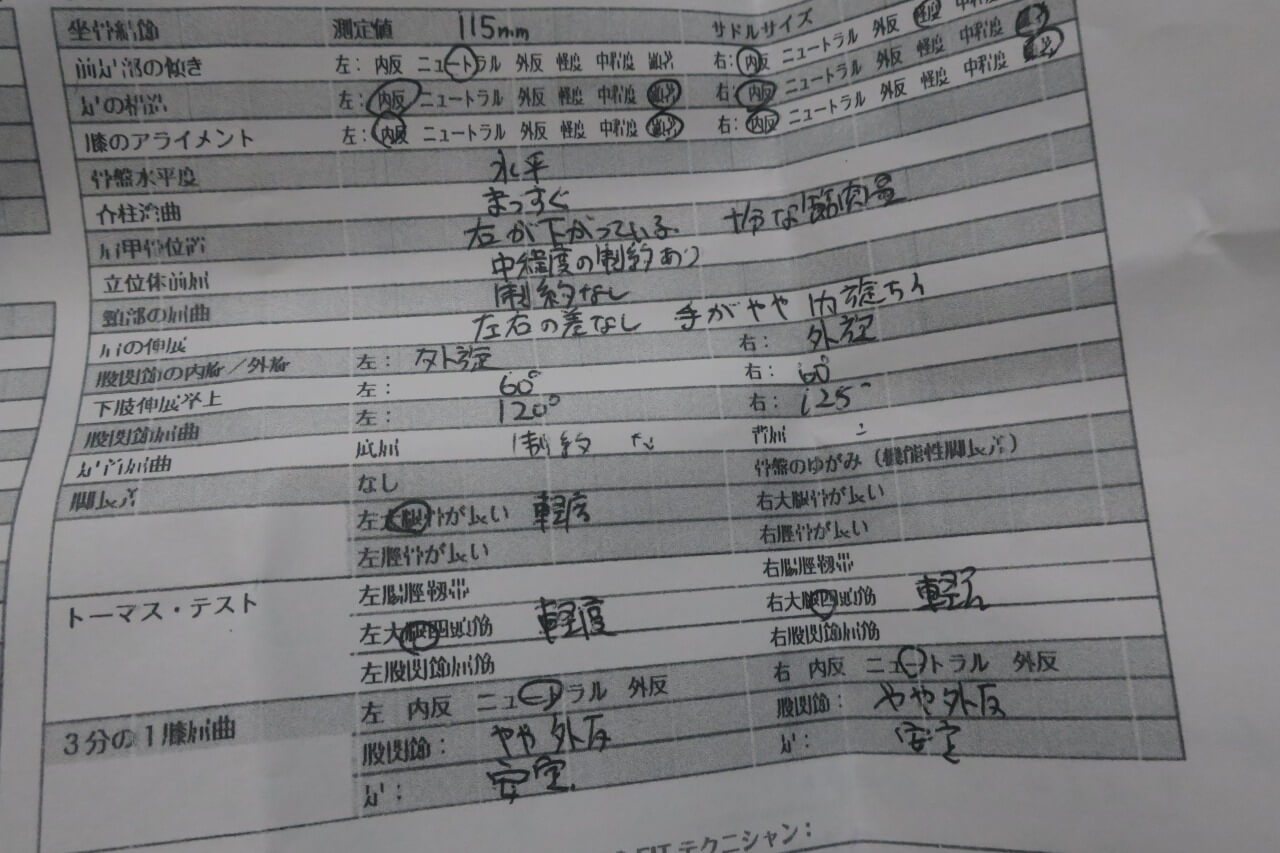 坐骨結節 測定値 115mm サドルサイズ
前足部の傾き 左: 内反 ニュートラル 外反 軽度 中程度 顕著 右: 内反 ニュートラル 外反 軽度 中程度 顕著
足の構造 左: 内反 ニュートラル 外反 軽度 中程度 顕著 右: 内反 ニュートラル 外反 軽度 中程度 顕著
膝のアライメント 左: 内反 ニュートラル 外反 軽度 中程度 顕著 右: 内反 ニュートラル 外反 軽度 中程度 顕著
骨盤水平度 水平
脊柱湾曲 まっすぐ
肩甲骨位置 右が下がっている 十分な筋肉量
立位体前屈 中程度の制約あり
頸部の屈曲 制約なし
肩の伸展 左右の差なし 手がやや内旋ぎみ
股関節の内旋/外旋 左: 外旋 右: 外旋
下肢伸展挙上 左: 60° 右: 60°
股関節屈曲 左: 120° 右: 125°
足首屈曲 底屈 制約 な 背屈
脚長差 なし 骨盤のゆがみ (機能性脚長差)
左大腿骨が長い 軽度 右大腿骨が長い
左脛骨が長い 右脛骨が長い
トーマス・テスト 左腸脛靭帯 右腸脛靭帯
左大腿四頭筋 軽度 右大腿四頭筋 軽度
左股関節屈筋 右股関節屈筋
3分の1膝屈曲 左 内反 ニュートラル 外反 右 内反 ニュートラル 外反
股関節: やや外反 股関節: やや外反
足: 安定 足: 安定
FIT テクニシャン: